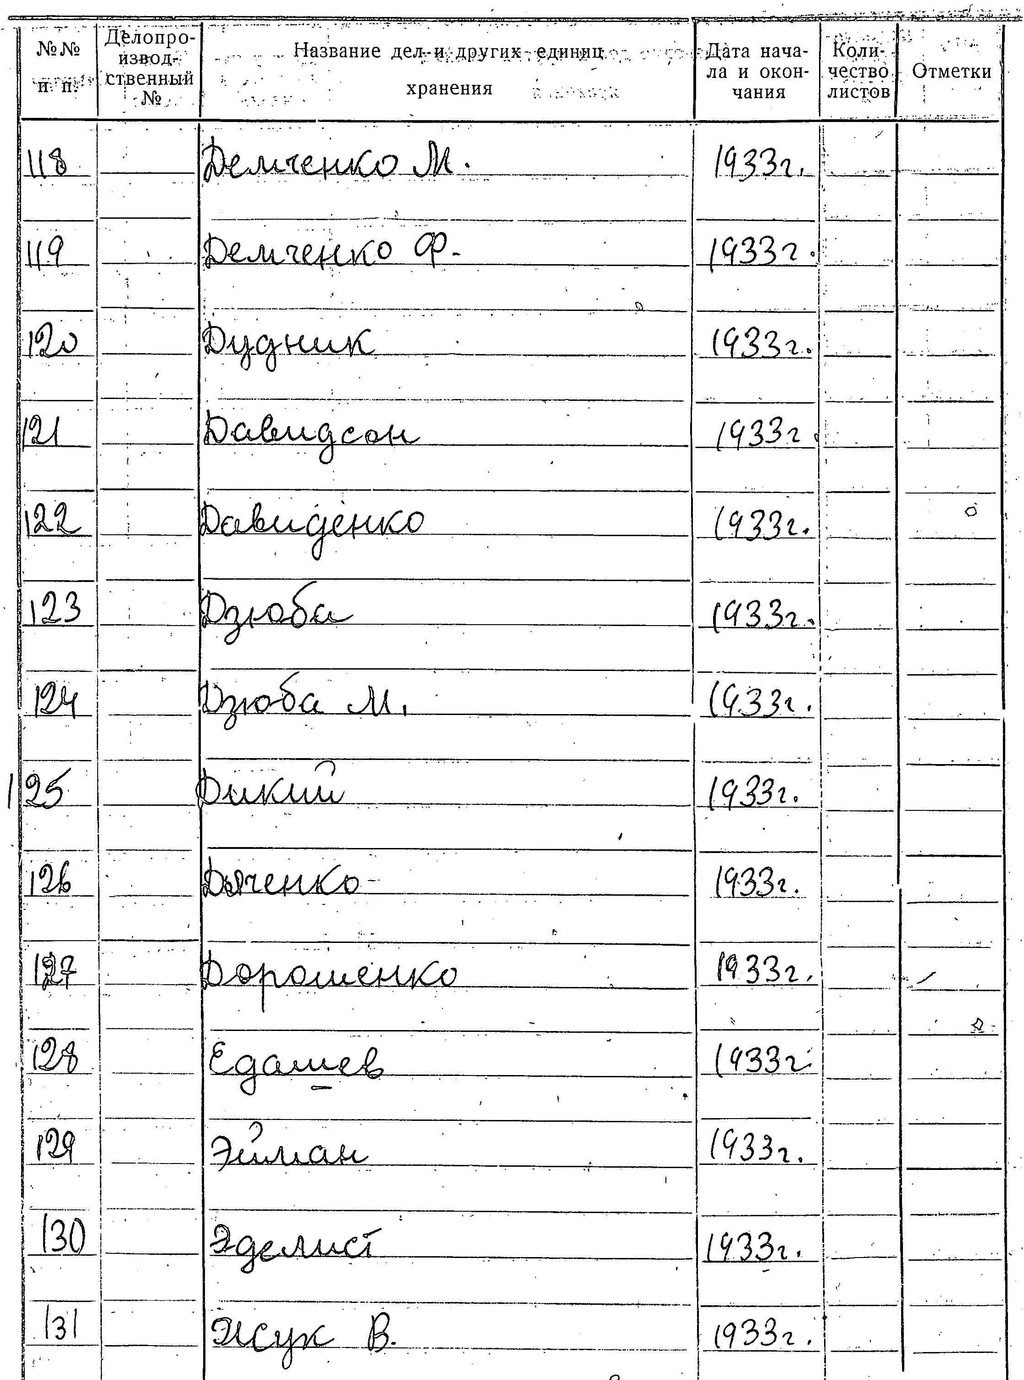 №№ п п. Делопро-извод-ственный № Название дел и других единиц хранения Дата нача-ла и окон-чания Коли-чество листов Отметки
118 Демченко М. 1933г.
119 Демченко Ф. 1933г.
120 Дудник 1933г.
121 Давидсон 1933г.
122 Давиденко 1933г.
123 Дзюба 1933г.
124 Дзюба М. 1933г.
125 Дикий 1933г.
126 Дяченко 1933г.
127 Дорошенко 1933г.
128 Едашев 1933г.
129 Эйман 1933г.
130 Эделист 1933г.
131 Жук В. 1933г.